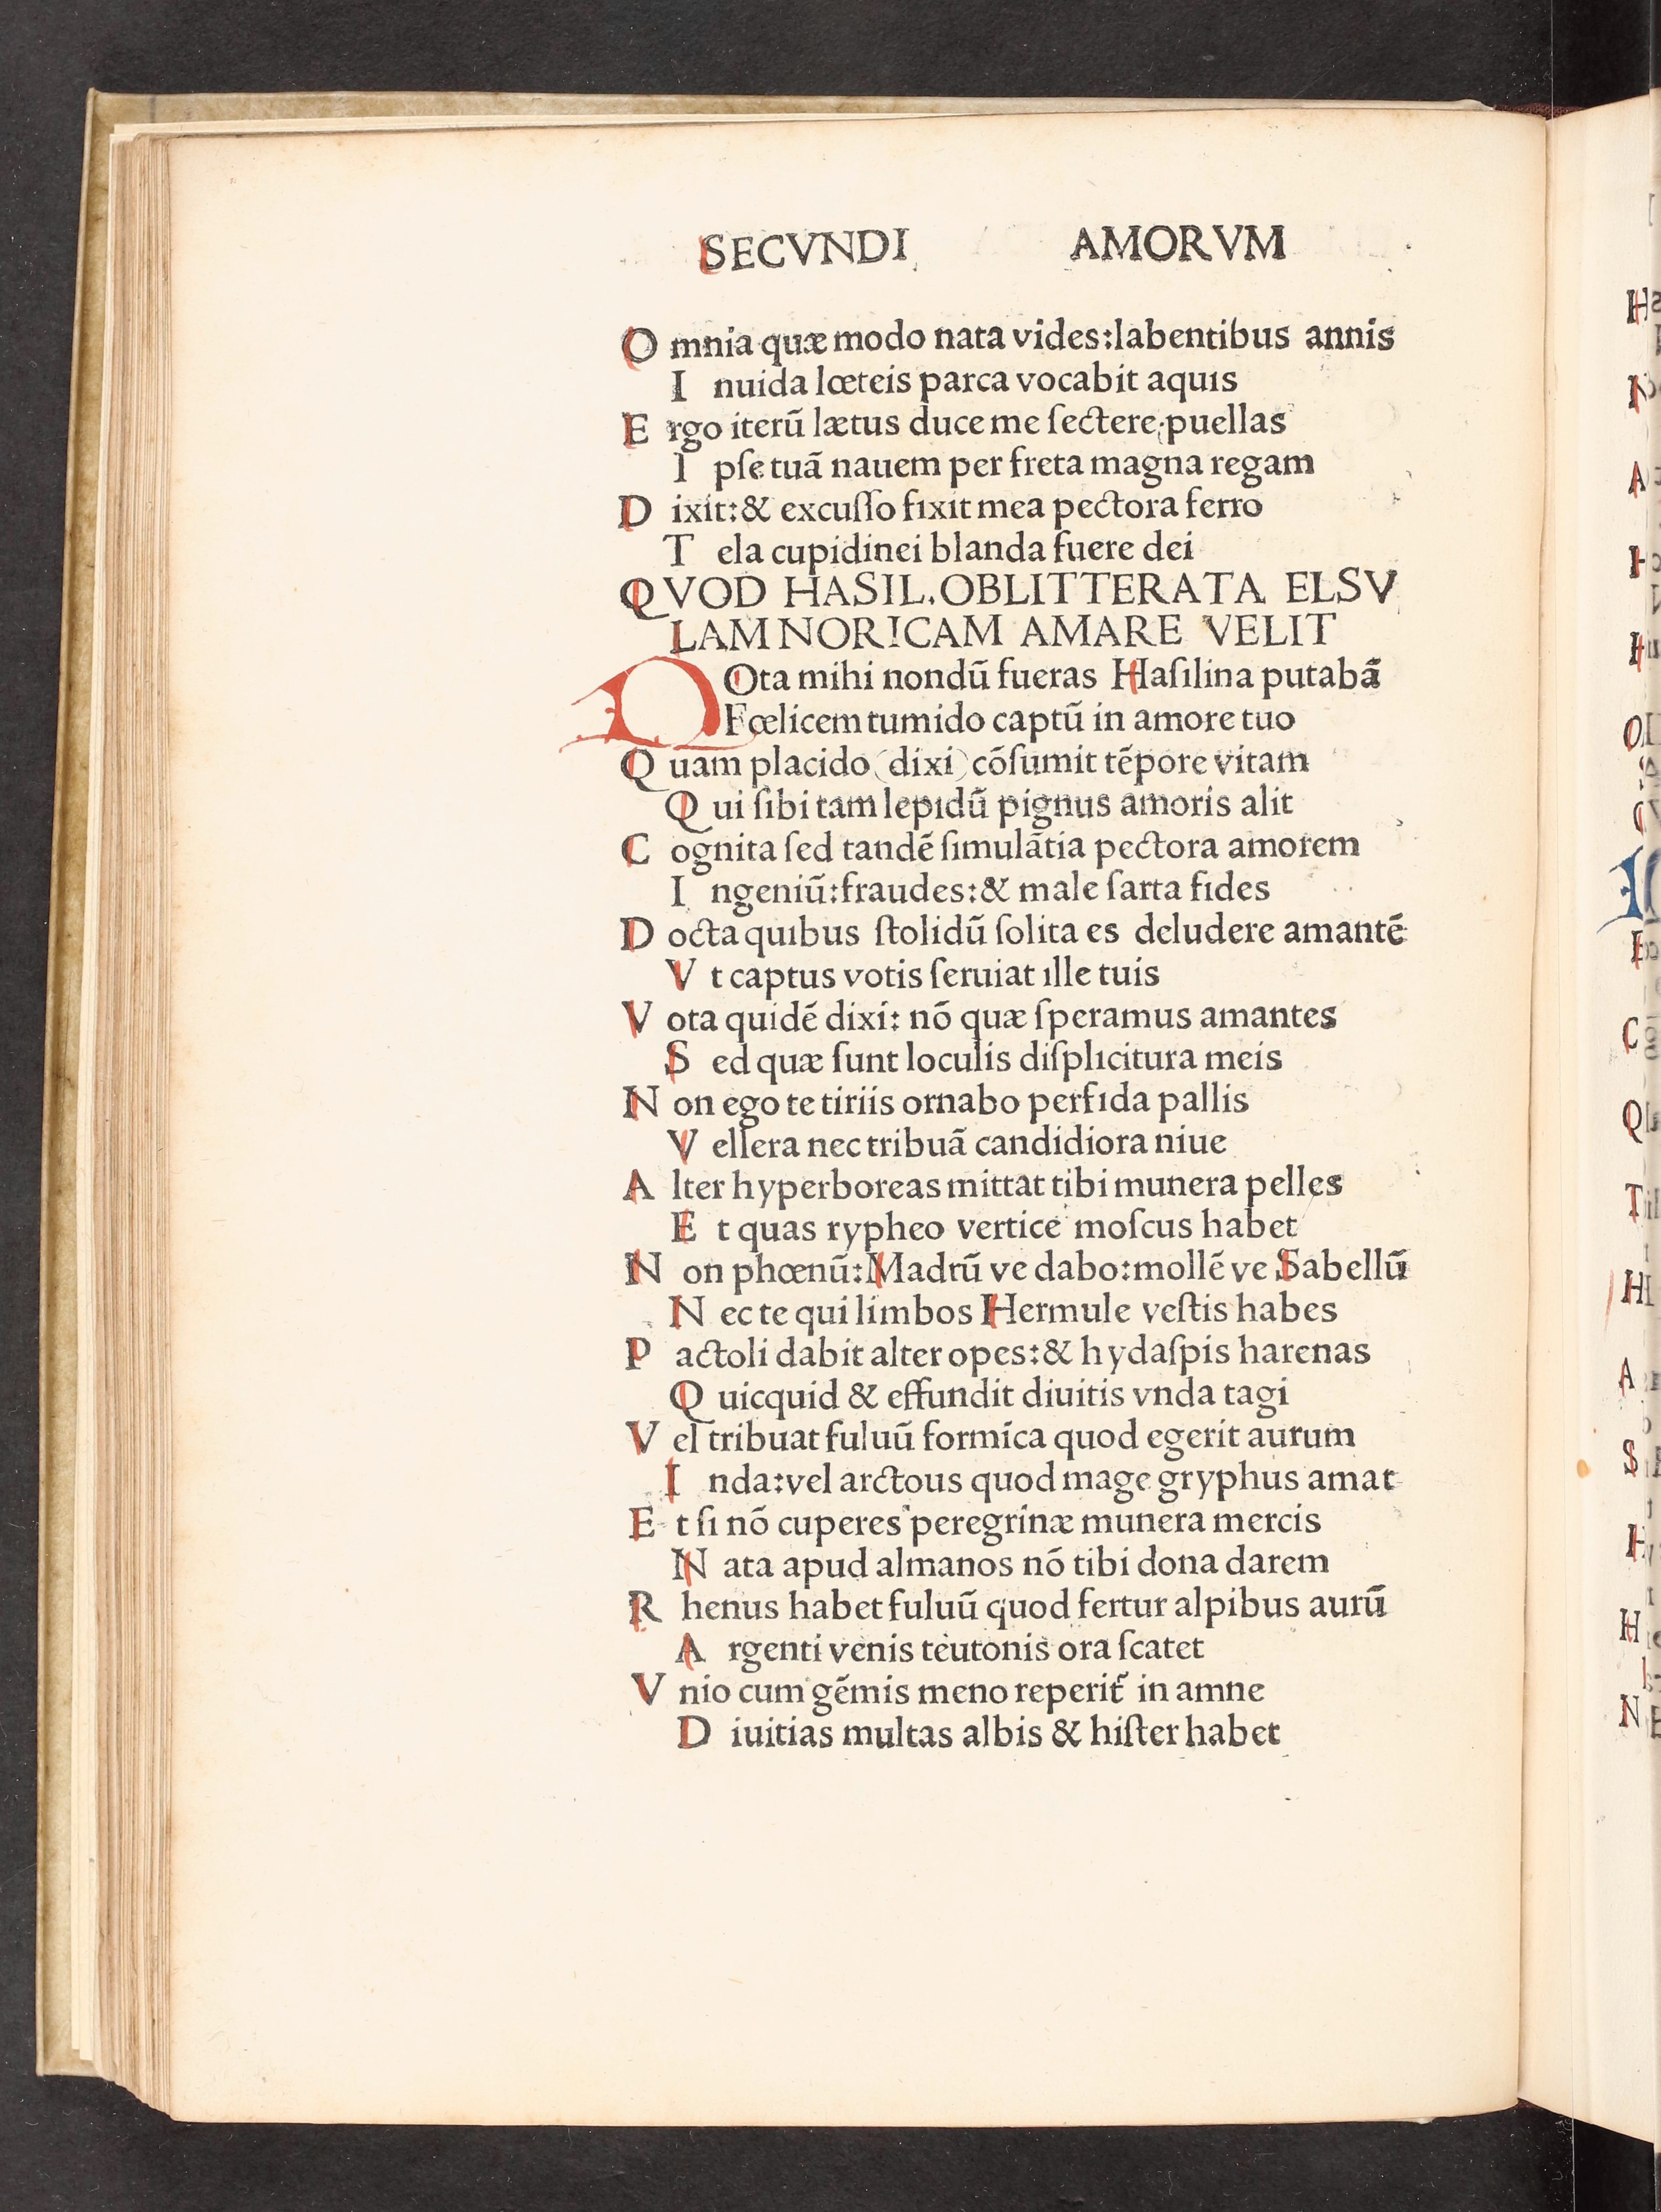 SECVNDI AMORVM
O mnia quæ modo nata vides:labentibus annis
I nuida lœteis parca vocabit aquis
E rgo iterũ lætus duce me ſectere puellas
I pſe tuã nauem per freta magna regam
D ixit:& excuſſo fixit mea pectora ferro
T ela cupidinei blanda fuere dei
QVOD HASIL.OBLITTERATA ELSV
LAM NORICAM AMARE VELIT
NOta mihi nondũ fueras Haſilina putabã
Fœlicem tumido captũ in amore tuo
Q uam placido (dixi) cõſumit tẽpore vitam
Q ui ſibi tam lepidũ pignus amoris alit
C ognita ſed tandẽ ſimulãtia pectora amorem
I ngeniũ:fraudes:& male ſarta fides
D octa quibus ſtolidũ ſolita es deludere amantẽ
V t captus votis ſeruiat ille tuis
V ota quidẽ dixi: nõ quæ ſperamus amantes
S ed quæ ſunt loculis diſplicitura meis
N on ego te tiriis ornabo perfida pallis
V ellera nec tribuã candidiora niue
A lter hyperboreas mittat tibi munera pelles
E t quas rypheo vertice moſcus habet
N on phœnũ:Madrũ ve dabo:mollẽ ve Sabellũ
N ec te qui limbos Hermule veſtis habes
P actoli dabit alter opes:& hydaſpis harenas
Q uicquid & effundit diuitis vnda tagi
V el tribuat fuluũ formica quod egerit aurum
I nda:vel arctous quod mage gryphus amat
E t ſi nõ cuperes peregrinæ munera mercis
N ata apud almanos nõ tibi dona darem
R henus habet fuluũ quod fertur alpibus aurũ
A rgenti venis teutonis ora ſcatet
V nio cum gẽmis meno reperit᷑ in amne
D iuitias multas albis & hiſter habet